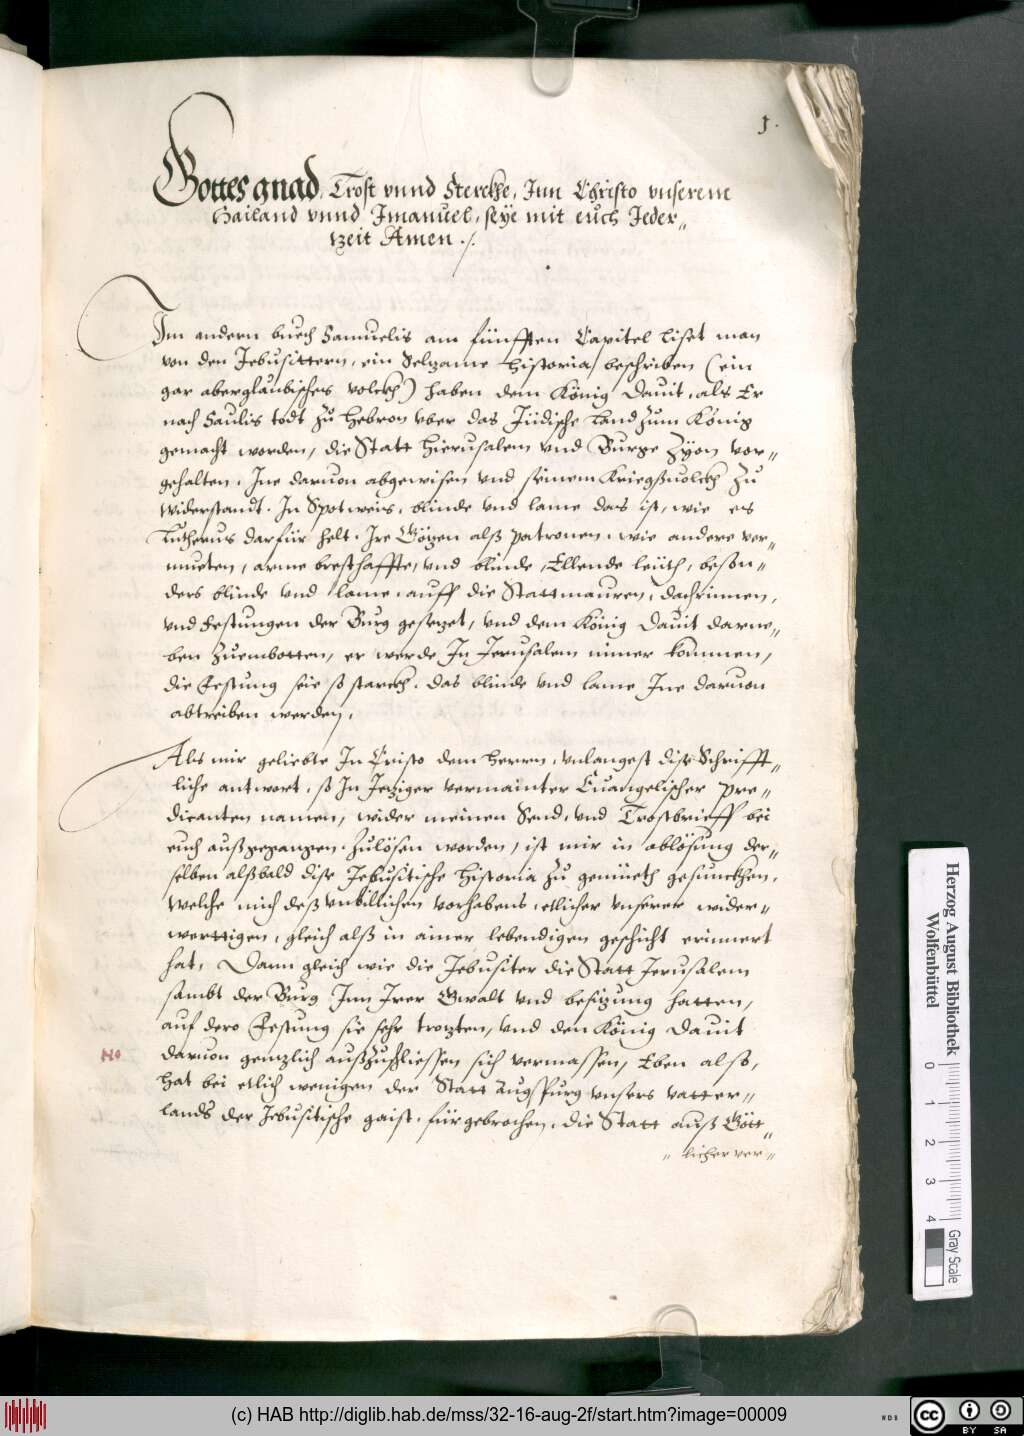 1.
Gottes gnad, Trost vnnd Sterckhe, Inn Christo vnserem
Hailand vnnd Imanuel, seye mit euch Ieder„
tzeit Amen ./.
Im andern buech Samuelis am fünfften Capitel liset man
von den Jebusittern, ein Selzame Historia beschriben (ein
gar aberglaubisches volckh) haben dem König Dauit, als Er
nach Saulis todt zu Hebron vber das Jüdische Land zum König
gemacht worden, die Statt Hierusalem vnd Burge Zyon vor„
gehalten. Ine daruon abgewisen vnd seinem Kriegßuolckh zu
widerstandt. In Spotweis, blinde vnd lame das ist, wie es
Lutherus darfür helt. Ire Götzen alß patronen. wie andere ver„
mueten, arme bresthaffte, vnd blinde, Ellende leüth, beson„
ders blinde vnd lame, auff die Stattmauren, dachrinnen,
vnd Festungen der Burg gesetzet, vnd dem König Dauit darne„
ben zuembotten, er werde In Jerusalem nimer kommen,
die Festung seie so starckh, das blinde vnd lame Ine daruon
abtreiben werden,
Als mir geliebte In Cristo dem Herren, vnlangest dise Schrifft„
liche antwort, so In Jetziger vermainter Euangelischer Pre„
dicanten namen, wider meinen Send, vnd Trostbrieff bei
euch außgegangen, zulösen worden, ist mir in ablösung der„
selben alßbald dise Jebusitische Historia zu gemüeth gesunckhen,
Welche mich deß vnbillichen vorhabens, etlicher vnserer wider„
werttigen, gleich alß in ainer lebendigen geschicht erinnert
hat, Dann gleich wie die Jebusiter die Statt Jerusalem
sambt der Burg Inn Irer Gwalt vnd besitzung hatten,
auf dero Festung sie sehr trotzten, vnd den König Dauit
daruon gentzlich außzuschliessen sich vermassen, Eben also,
No
hat bei etlich wenigen der Statt Augspurg vnsers vatter„
lands der Jebusitische gaist, fürgebrochen, die Statt auß Gött„
„ licher ver„
Herzog August Bibliothek
Wolfenbüttel
0 1 2 3 4
Gray Scale
(c) HAB http://diglib.hab.de/mss/32-16-aug-2f/start.htm?image=00009
WDB
cc BY SA